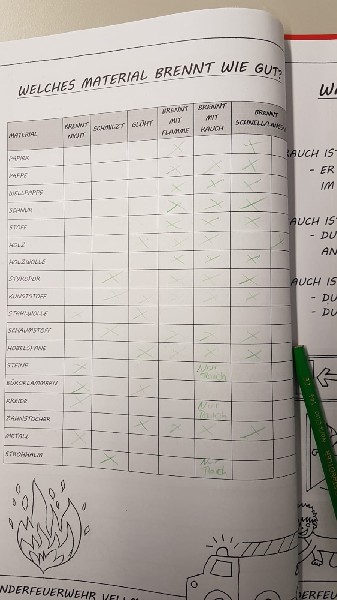 WELCHES MATERIAL BRENNT WIE GUT?
MATERIAL BRENNT NICHT SCHMILZT GLÜHT BRENNT MIT FLAMME BRENNT MIT RAUCH BRENNT SCHNELL
PAPIER
PAPPE
WELLPAPPE
SCHNUR
STOFF
HOLZ
HOLZWOLLE
STYROPOR
KUNSTSTOFF
STAHLWOLLE
SCHAUMSTOFF
HOBELSPÄNE
STEINE Nur Rauch
BÜROKLAMMERN
KREIDE Nur Rauch
ZAHNSTOCHER
METALL
STROHHALM Nur Rauch
NDERFEUERWEHR
WA
RAUCH IST
- ER
IM
AUCH IS
- DU
AN
AUCH IS
- DU
- DU